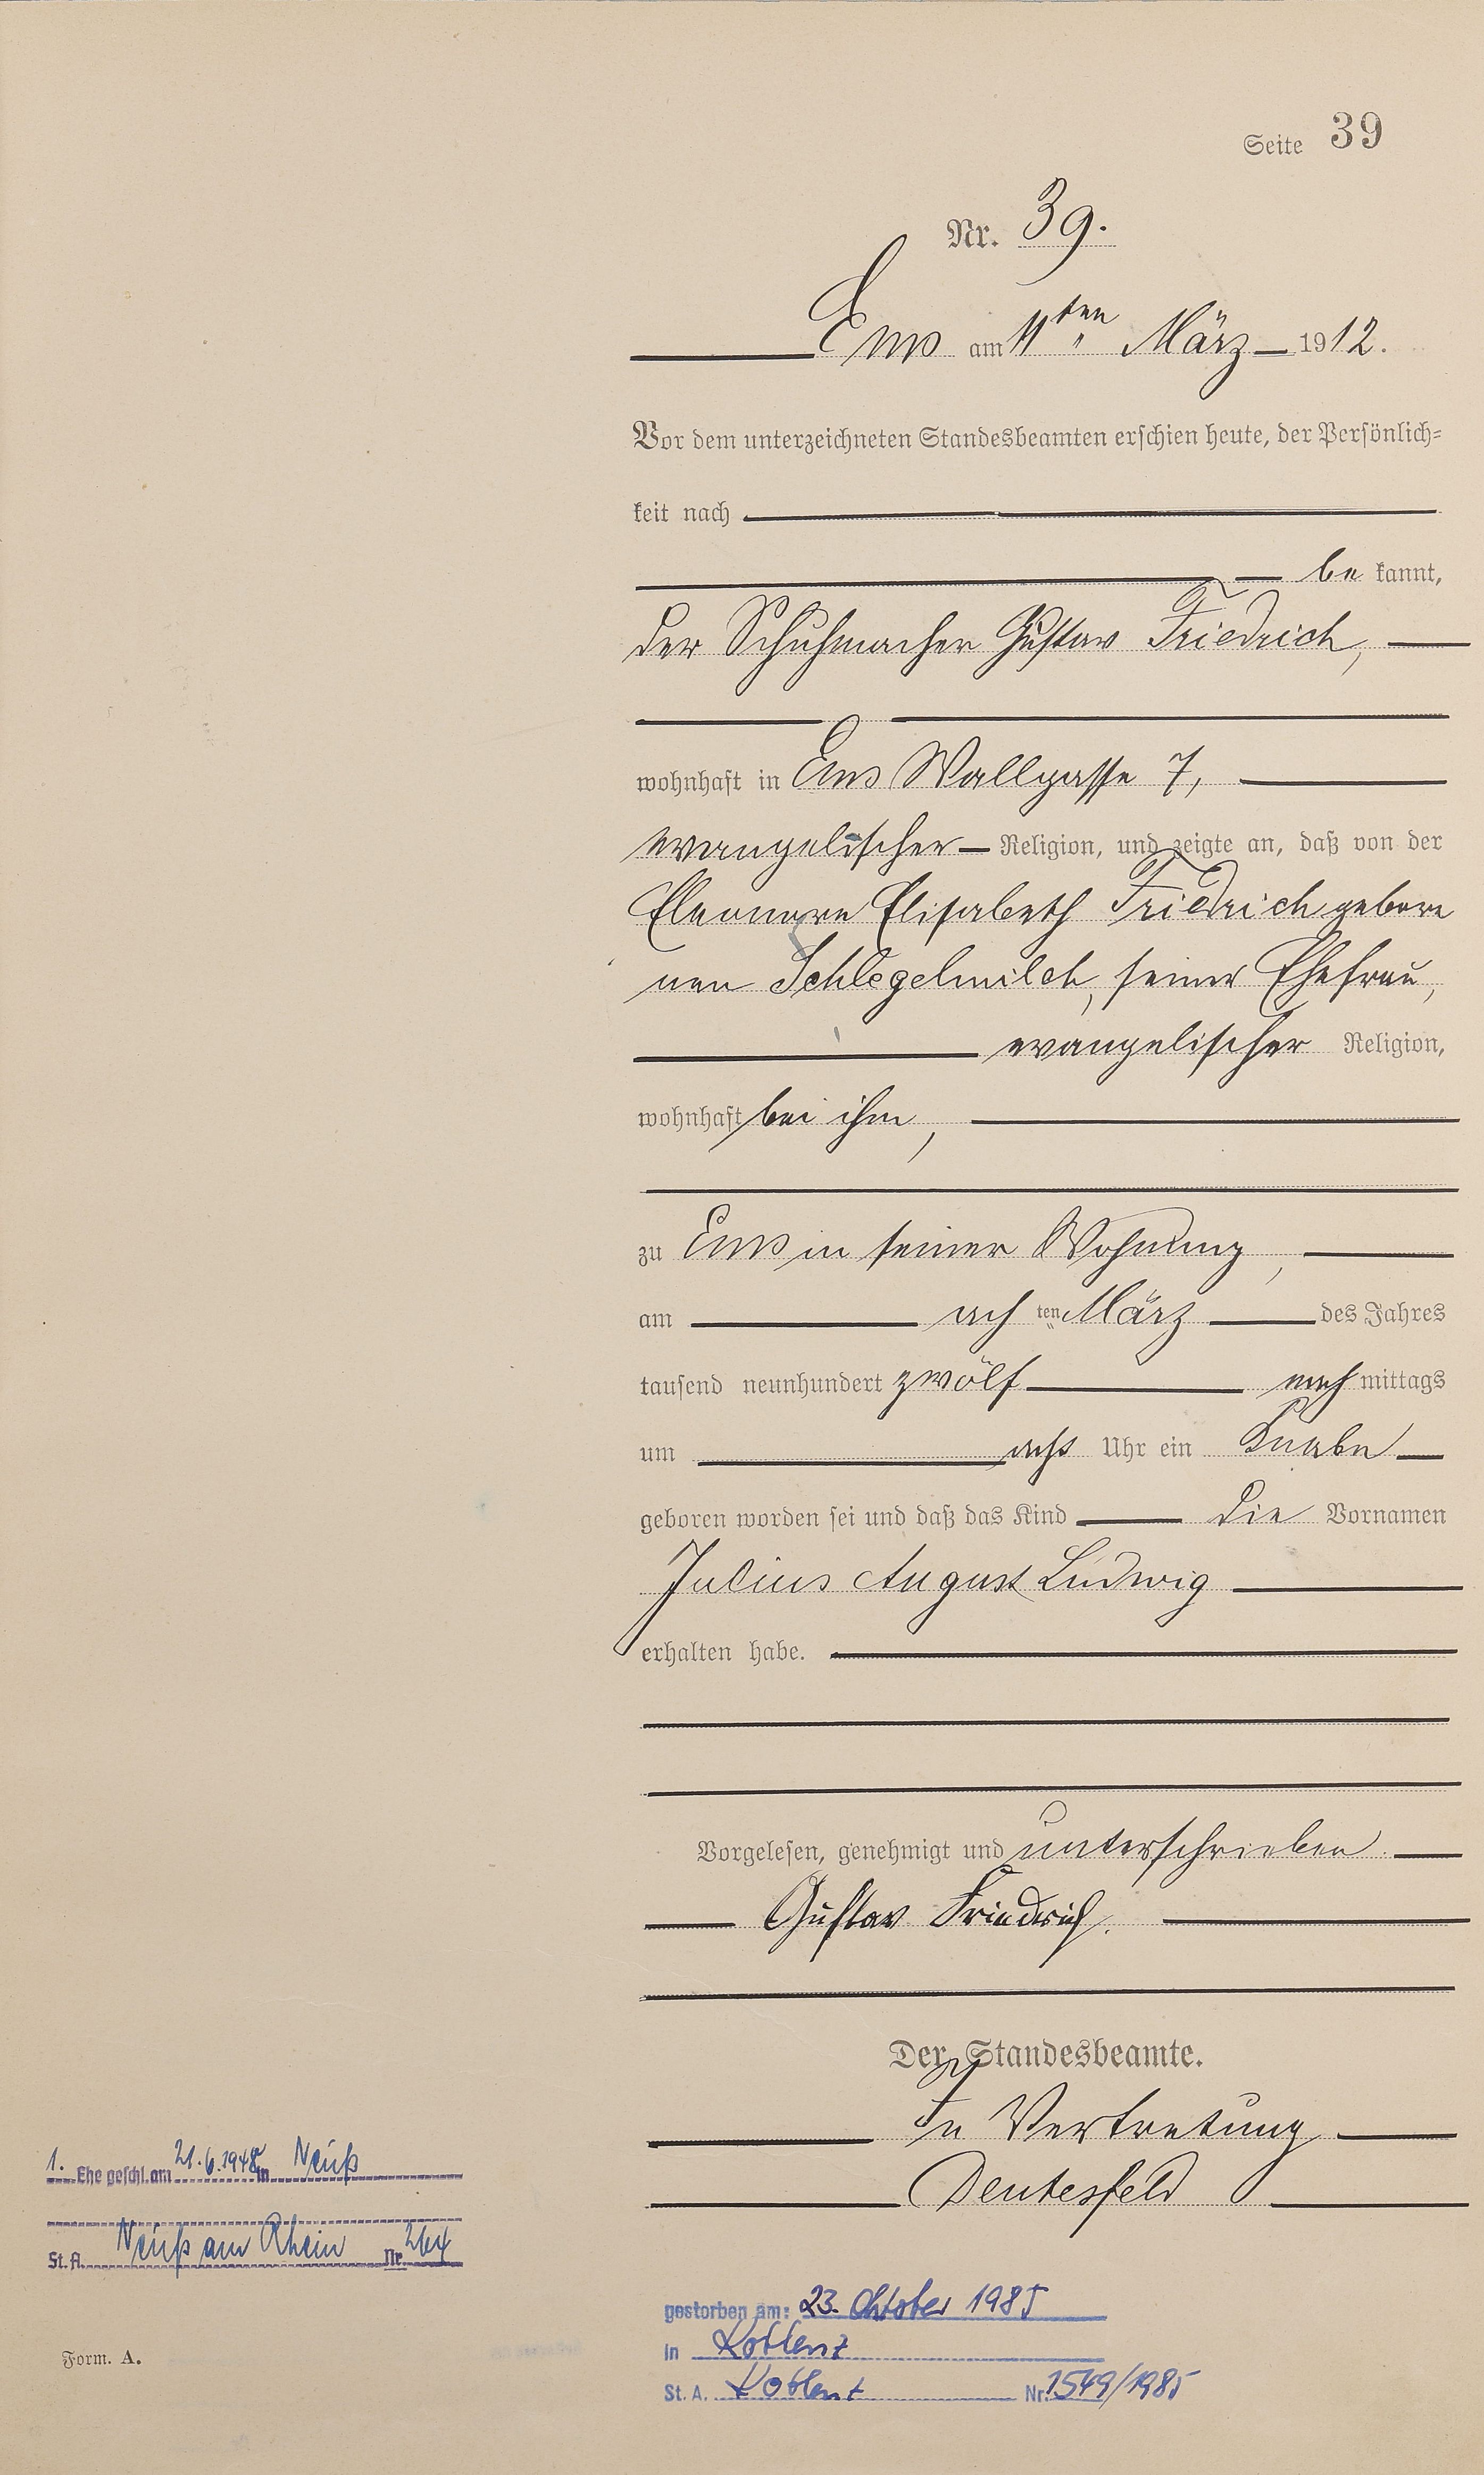 Seite 39
Nr. 39.
Ems am 11ten März 1912.
Vor dem unterzeichneten Standesbeamten erschien heute, der Persönlich-
keit nach
be kannt,
der Schuhmacher Gustav Friedrich,
wohnhaft in Ems Wallgasse 7,
evangelischer Religion, und zeigte an, daß von der
Eleonore Elisabeth Friedrich gebore
nen Schlegelmilch, seiner Ehefrau,
evangelischer Religion,
wohnhaft bei ihm,
zu Ems in seiner Wohnung,
am ach ten März des Jahres
tausend neunhundert zwölf nach mittags
um acht Uhr ein Knabe
geboren worden sei und daß das Kind die Vornamen
Julius August Ludwig
erhalten habe.
Vorgelesen, genehmigt und unterschrieben.
Gustav Friedrich.
Der Standesbeamte.
In Vertretung
Deutesfeld
1. Ehe geschl. am 21.6.1948 in Neuß
St. A. Neuß am Rhein Nr 264
gestorben am: 23. Oktober 1985
in Koblenz
St. A. Koblenz Nr. 1549/1985
Form. A.